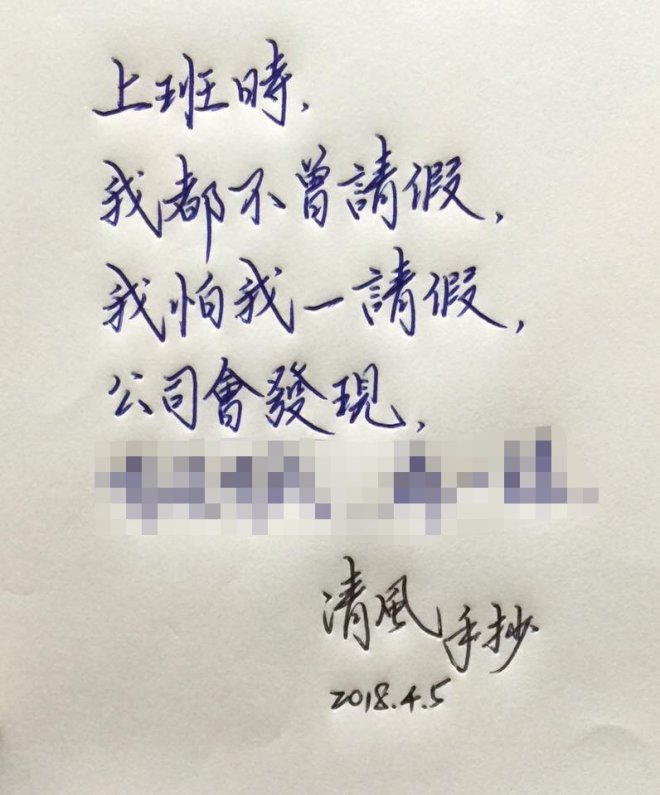 上班時,
我都不曾請假,
我怕我一請假,
公司會發現,
清風手抄
2018.4.5